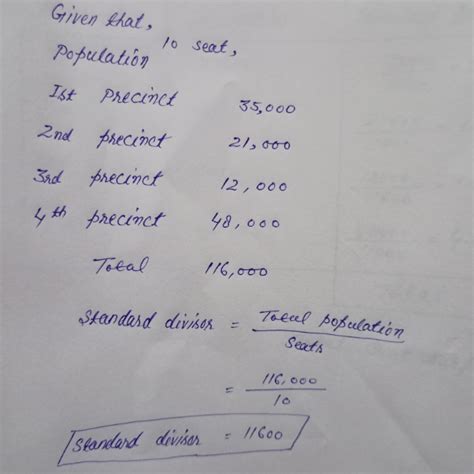 Given that,
10 seat,
Population
Ist Precinct 35,000
2nd precinct 21,000
3rd precinct 12,000
4th precinct 48,000
Total 116,000
Standard divisor = Total population
Seats
= 116,000
10
Standard divisor = 11600